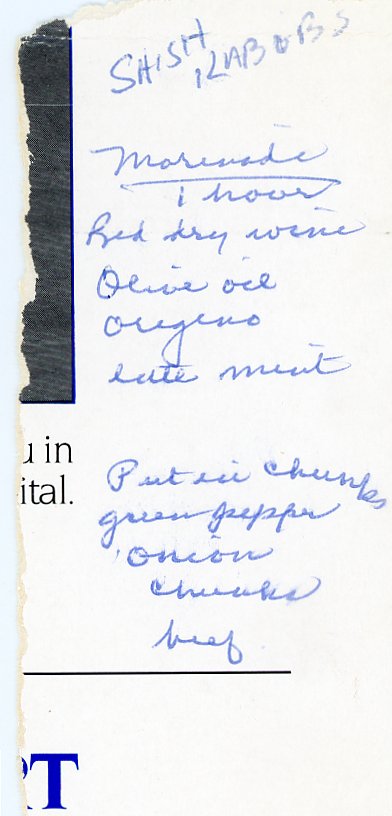 SHISH KABOBS
Marenade
1 hour
Red dry wine
Olive oil
Oregeno
mint
u in
ital.
Put in chunks
green pepper
onion
chunks
beef
RT